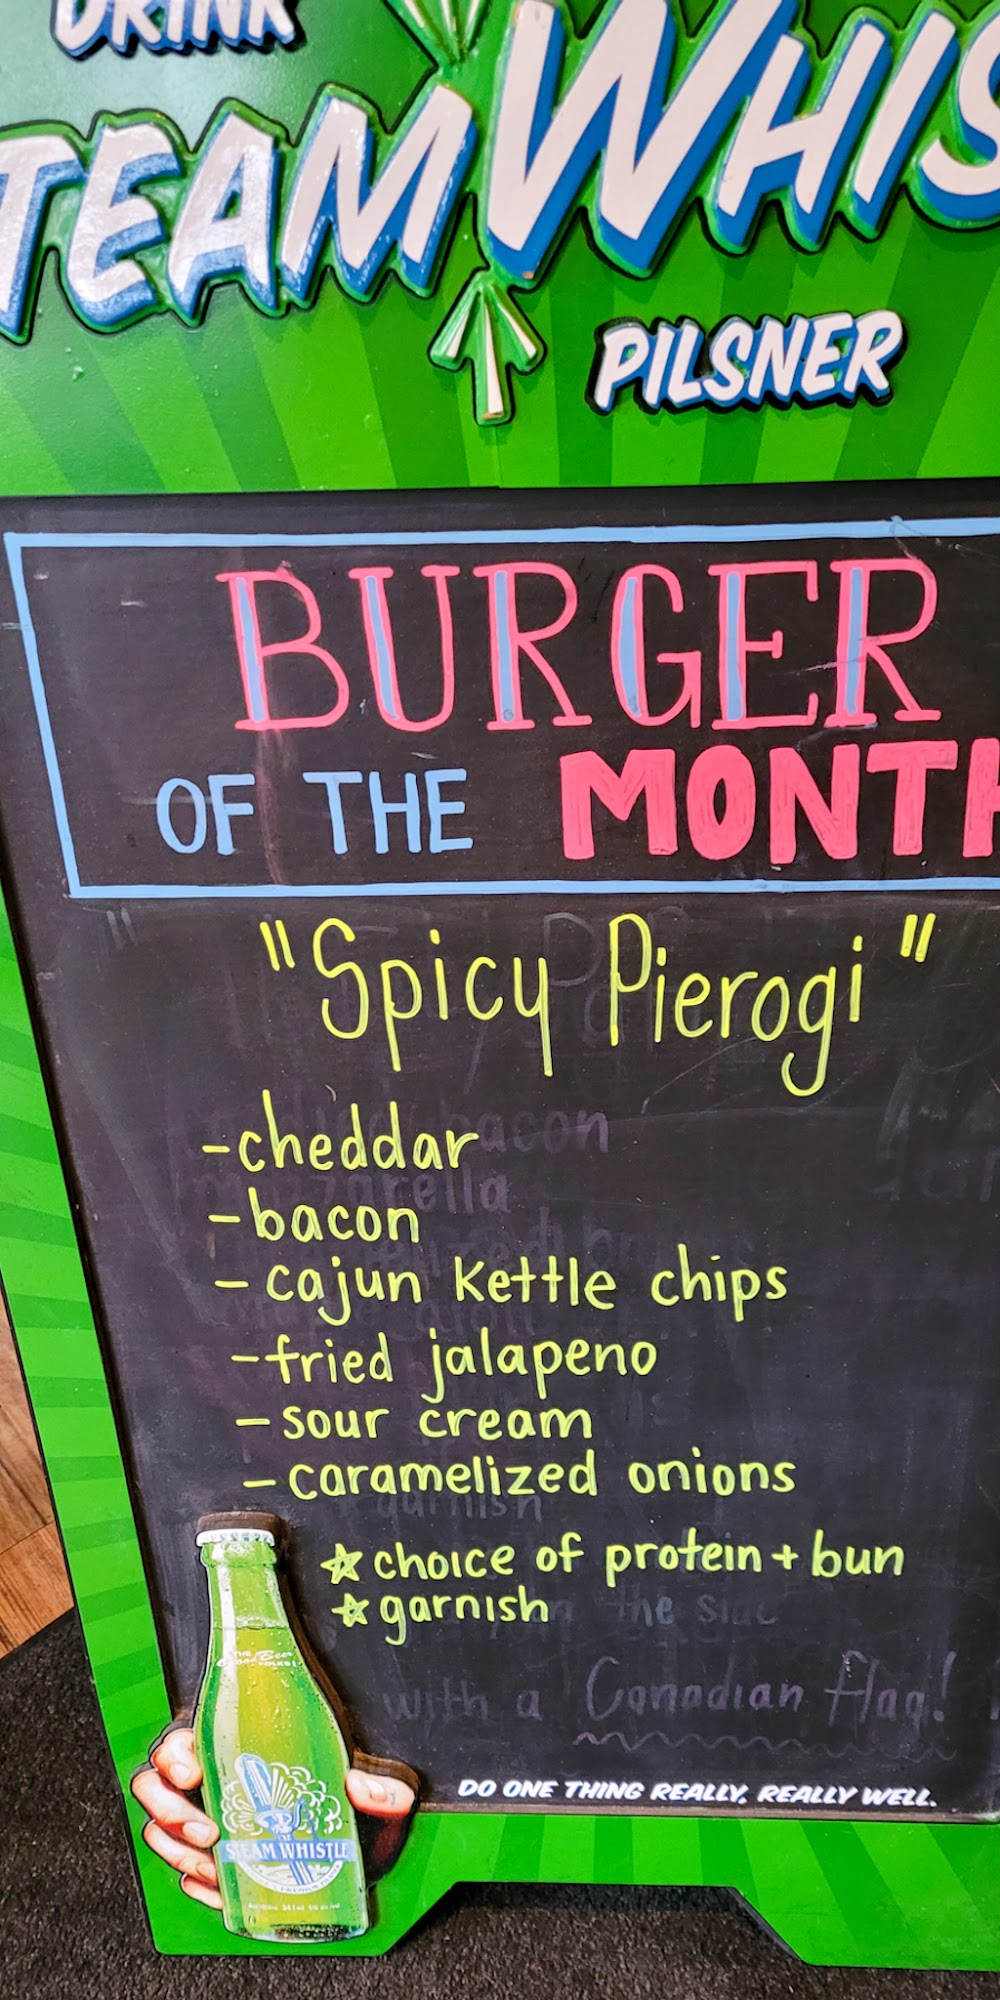 DRINK
TEAM WHIS
PILSNER
BURGER
OF THE MONTH
"Spicy Pierogi"
-cheddar
-bacon
-cajun kettle chips
-fried jalapeno
-sour cream
-caramelized onions
☆ choice of protein + bun
☆ garnish
the side
with a Canadian flag!
DO ONE THING REALLY, REALLY WELL.
THE
Good Beer
FOLKS!
STEAM WHISTLE